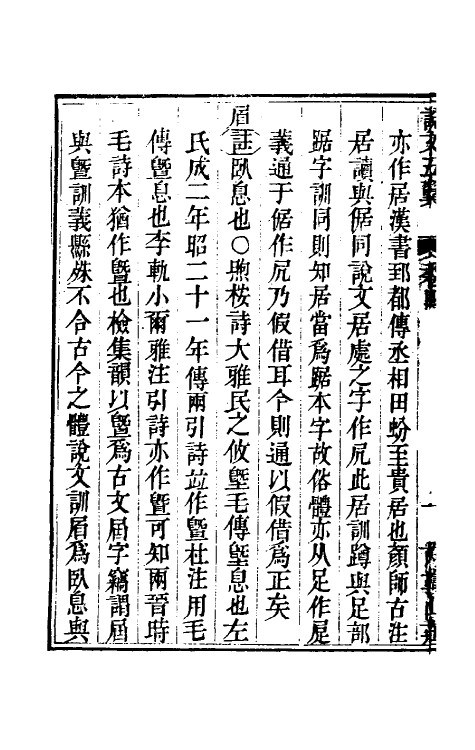 亦作居漢書郅都傳丞相田蚡至貴居也顏師古注
居讀與倨同說文居處之字作凥此居訓蹲與足部
踞字訓同則知居當爲踞本字故俗體亦从足作𡱐
義通于倨作凥乃假借耳今則通以假借爲正矣
眉 註 臥息也〇煦桉詩大雅民之攸塈毛傳塈息也左
氏成二年昭二十一年傳兩引詩並作曁杜注用毛
傳曁息也李軌小爾雅注引詩亦作曁可知兩晉時
毛詩本猶作曁也檢集韻以曁爲古文屇字竊謂屇
與曁訓義縣殊不合古今之體說文訓眉爲臥息與